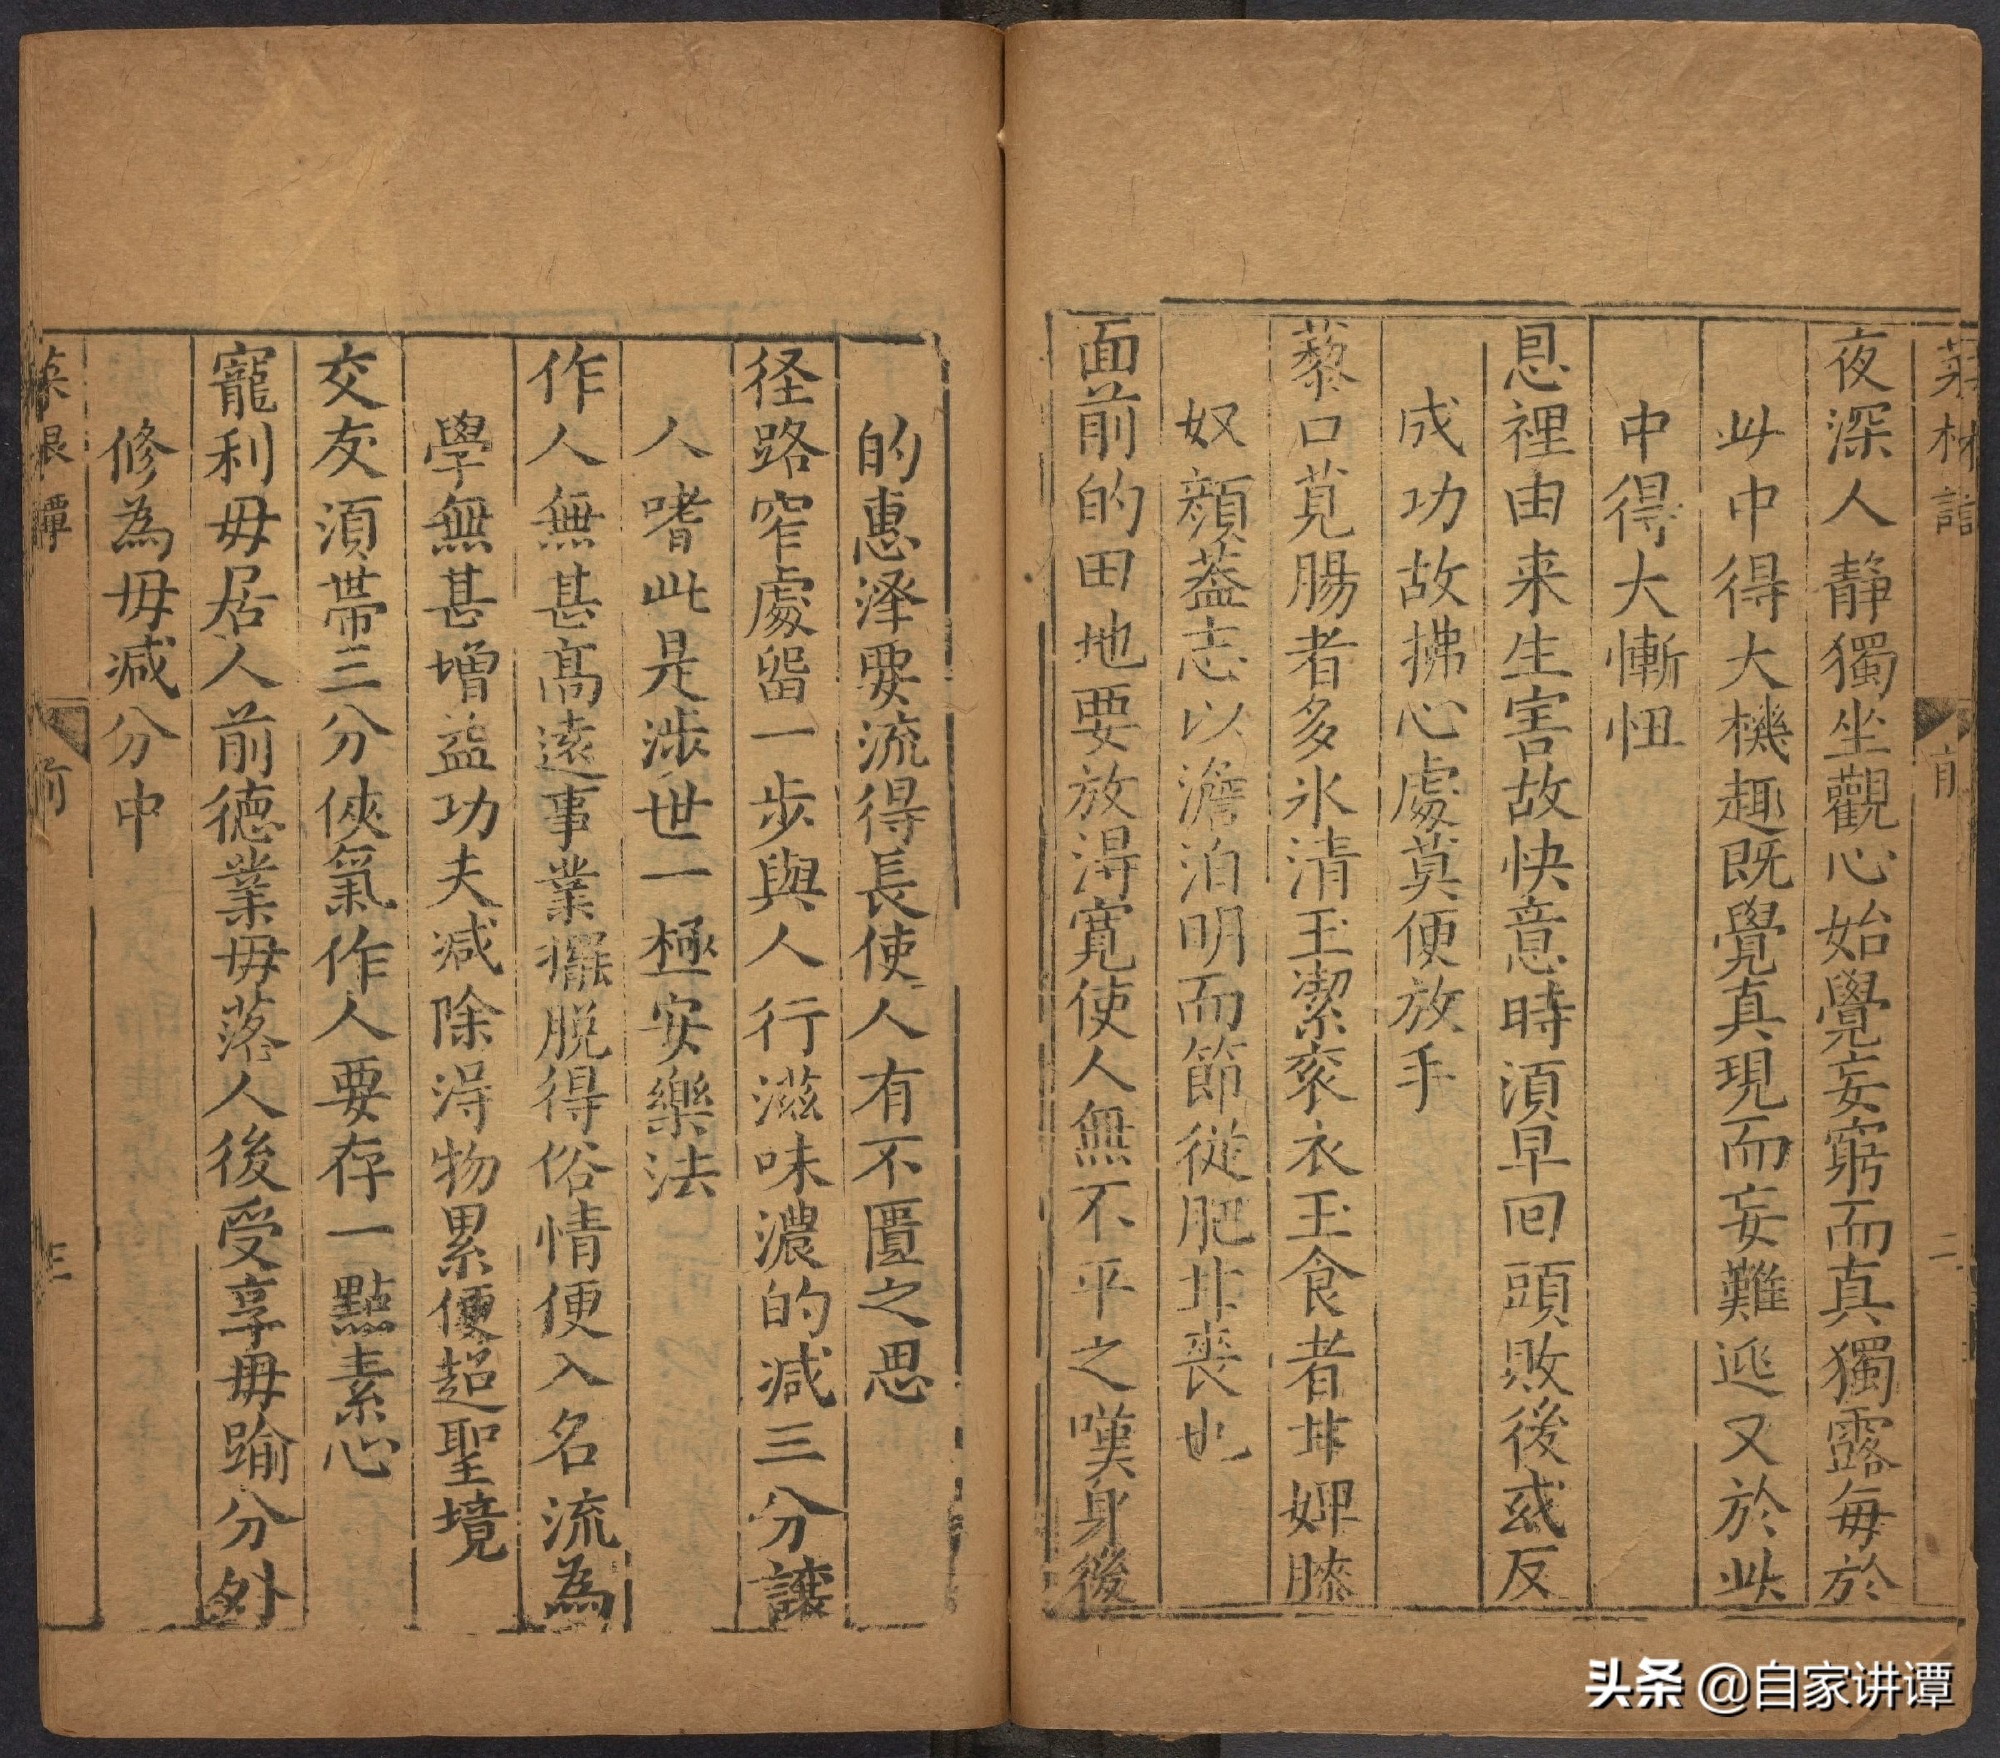 夜深人靜獨坐觀心始覺妄窮而真獨露每於
此中得大機趣既覺真現而妄難逃又於此
中得大慚忸
恩裡由来生害故快意時湏早回頭敗後或反
成功故拂心處莫便放手
藜口莧腸者多氷清玉潔衮衣玉食者甘婢膝
奴顔蓋志以澹泊明而節從肥甘喪也
面前的田地要放得寛使人無不平之嘆身後
的惠澤要流得長使人有不匱之思
径路窄處留一步與人行滋味濃的减三分讓
人嗜此是涉世一極安樂法
作人無甚髙遠事業擺脱得俗情便入名流為
學無甚增益功夫减除得物累便超聖境
交友湏帶三分俠氣作人要存一點素心
寵利毋居人前德業毋落人後受享毋踰分外
修為毋减分中
前
三
头条 @自家讲谭